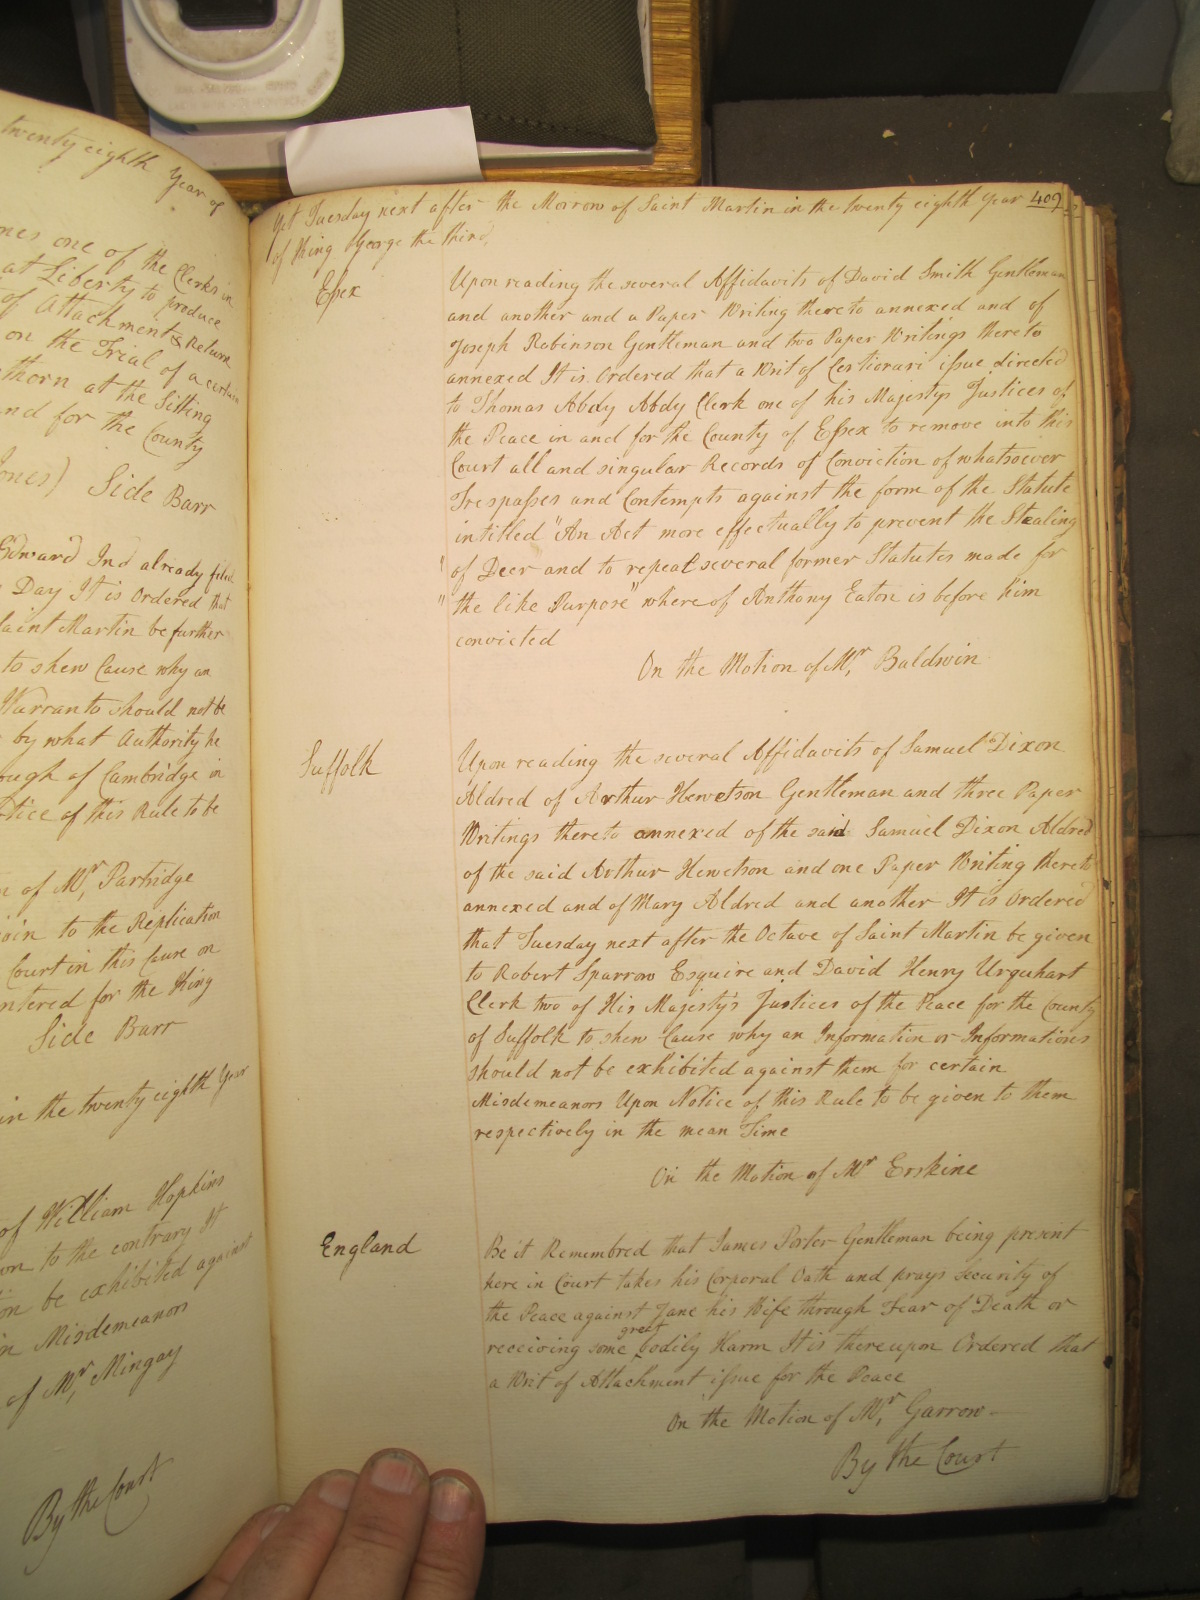 twenty eighth Year of
one of the Clerks in
at Liberty to produce
of Attachment & Return
on the Trial of a certain
thorn at the Sitting
and for the County
Side Barr
Edward Ind already filed
Day It is Ordered that
Saint Martin be further
to shew Cause why an
Warranto should not be
by what Authority he
of Cambridge in
Notice of this Rule to be
of Mr. Partridge
join to the Replication
Court in this Cause on
entered for the King
Side Barr
in the twenty eighth Year
of William Hopkins
to the contrary It
be exhibited against
Misdemeanors
of Mr. Mingay
By the Court
Yet Tuesday next after the Morrow of Saint Martin in the twenty eighth Year 409
of King George the third,
Essex
Upon reading the several Affidavits of David Smith Gentleman
and another and a Paper Writing thereto annexed and of
Joseph Robinson Gentleman and two Paper Writings thereto
annexed It is Ordered that a Writ of Certiorari issue directed
to Thomas Abdy Abdy Clerk one of his Majestys Justices of
the Peace in and for the County of Essex to remove into this
Court all and singular Records of Conviction of whatsoever
Trespasses and Contempts against the form of the Statute
intitled "An Act more effectually to prevent the Stealing
" of Deer and to repeal several former Statutes made for
" the like Purpose" whereof Anthony Eaton is before him
convicted
On the Motion of Mr. Baldwin
Suffolk
Upon reading the several Affidavits of Samuel Dixon
Aldred of Arthur Hewetson Gentleman and three Paper
Writings thereto annexed of the said Samuel Dixon Aldred
of the said Arthur Hewetson and one Paper Writing thereto
annexed and of Mary Aldred and another It is Ordered
that Tuesday next after the Octave of Saint Martin be given
to Robert Sparrow Esquire and David Henry Urquhart
Clerk two of His Majesty's Justices of the Peace for the County
of Suffolk to shew Cause why an Information or Informations
should not be exhibited against them for certain
Misdemeanors Upon Notice of this Rule to be given to them
respectively in the mean Time
On the Motion of Mr Erskine
England
Be it Remembred that James Porter Gentleman being present
here in Court takes his Corporal Oath and prays Security of
the Peace against Jane his Wife through Fear of Death or
receiving some great bodily Harm It is thereupon Ordered that
a Writ of Attachment issue for the Peace
On the Motion of Mr. Garrow
By the Court